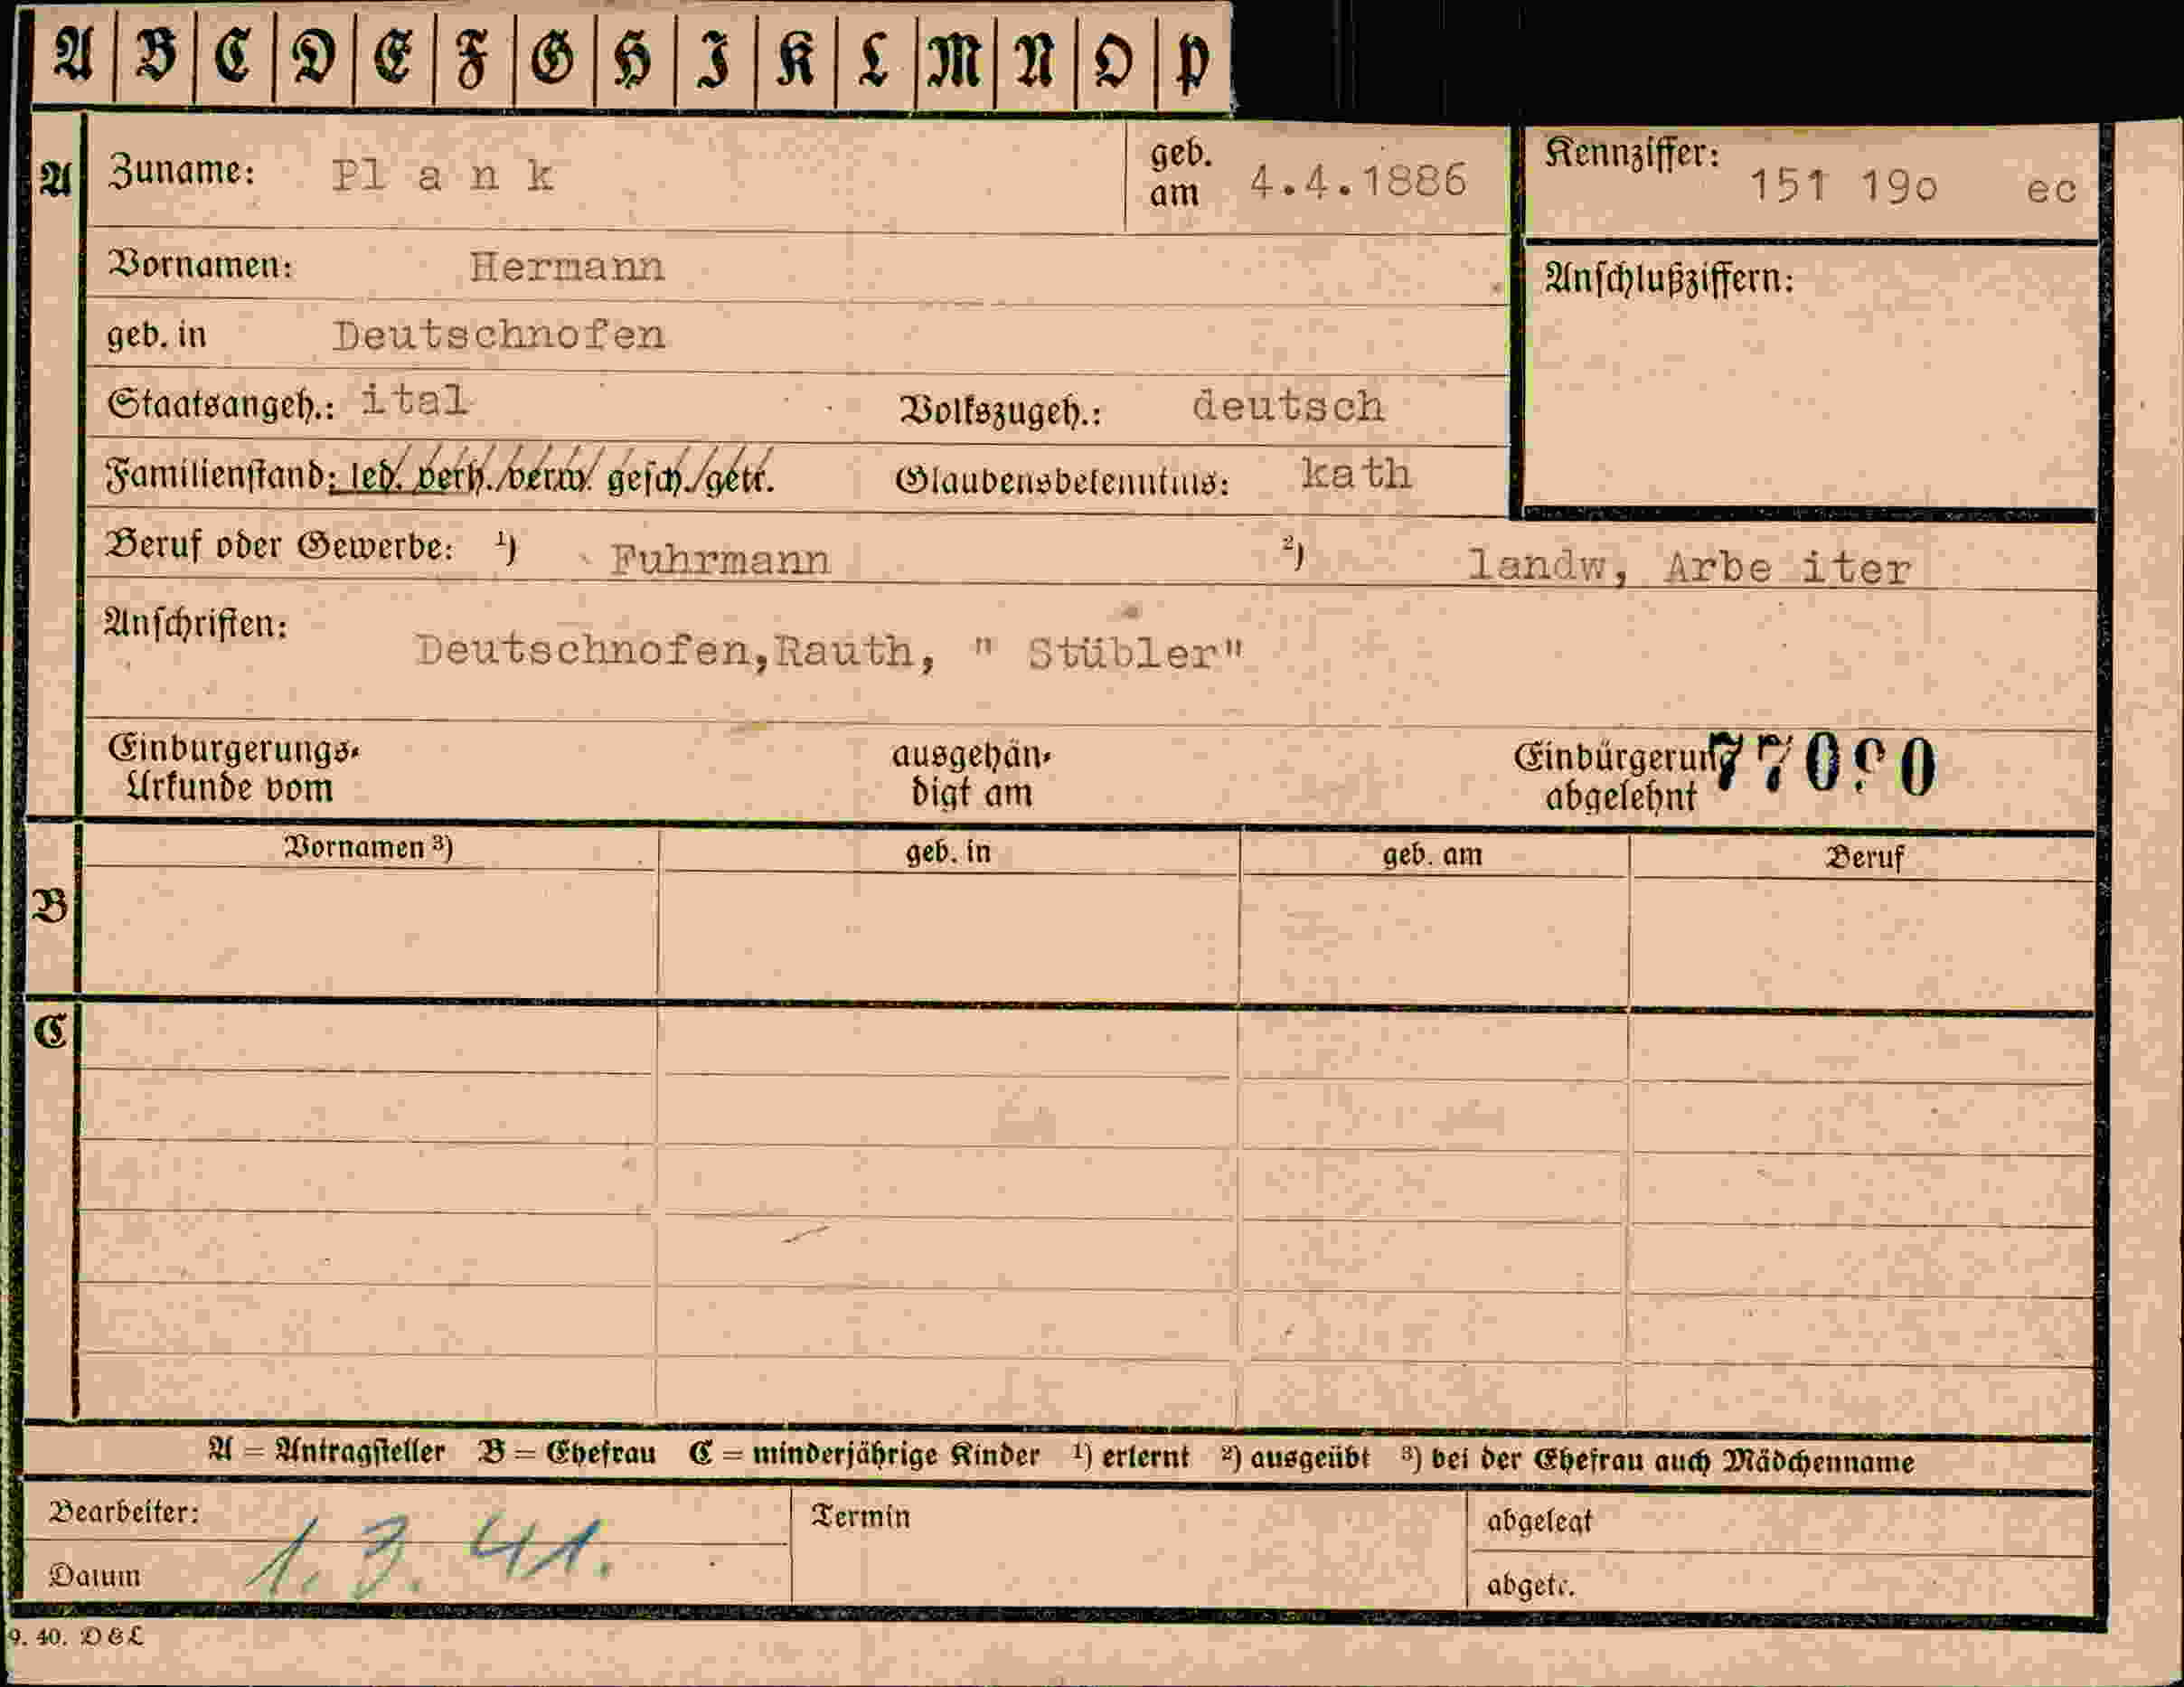 A B C D E F G H I K L M N O P
A Zuname: Pl a n k geb. am 4.4.1886 Kennziffer: 151 19o ec
Vornamen: Hermann Anschlußziffern:
geb. in Deutschnofen
Staatsangeh.: ital Volkszugeh.: deutsch
Familienstand: led. verh./verw. gesch./getr. Glaubensbekenntnis: kath
Beruf oder Gewerbe: ¹) Fuhrmann ²) landw, Arbe iter
Anschriften: Deutschnofen,Rauth, " Stübler"
Einbürgerungs- ausgehän- Einbürgerung
Urkunde vom digt am abgelehnt
B Vornamen ³) geb. in geb. am Beruf
C
A = Antragsteller B = Ehefrau C = minderjährige Kinder ¹) erlernt ²) ausgeübt ³) bei der Ehefrau auch Mädchenname
Bearbeiter: Termin abgelegt
Datum 1.3.41. abgetr.
9. 40. D&L